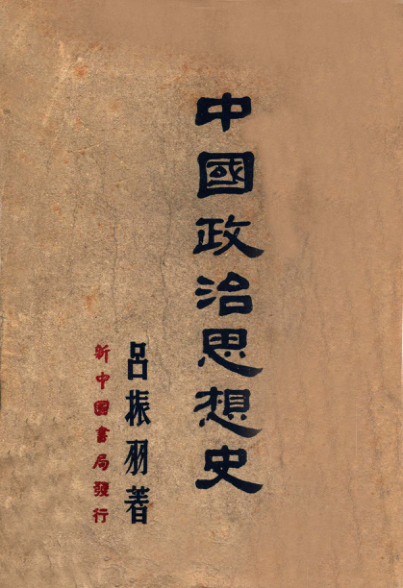 中國政治思想史
呂振羽著
新中國書局發行